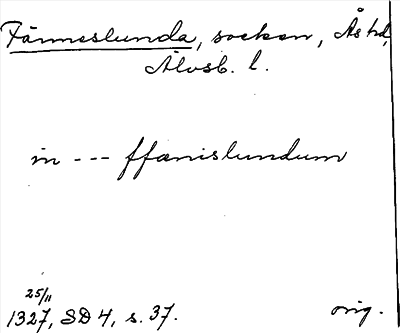 Fänneslunda, socken, Ås hd,
Älvsb. l.
in --- ffænislundum
25/11
1327, SD 4, s. 37.
orig.